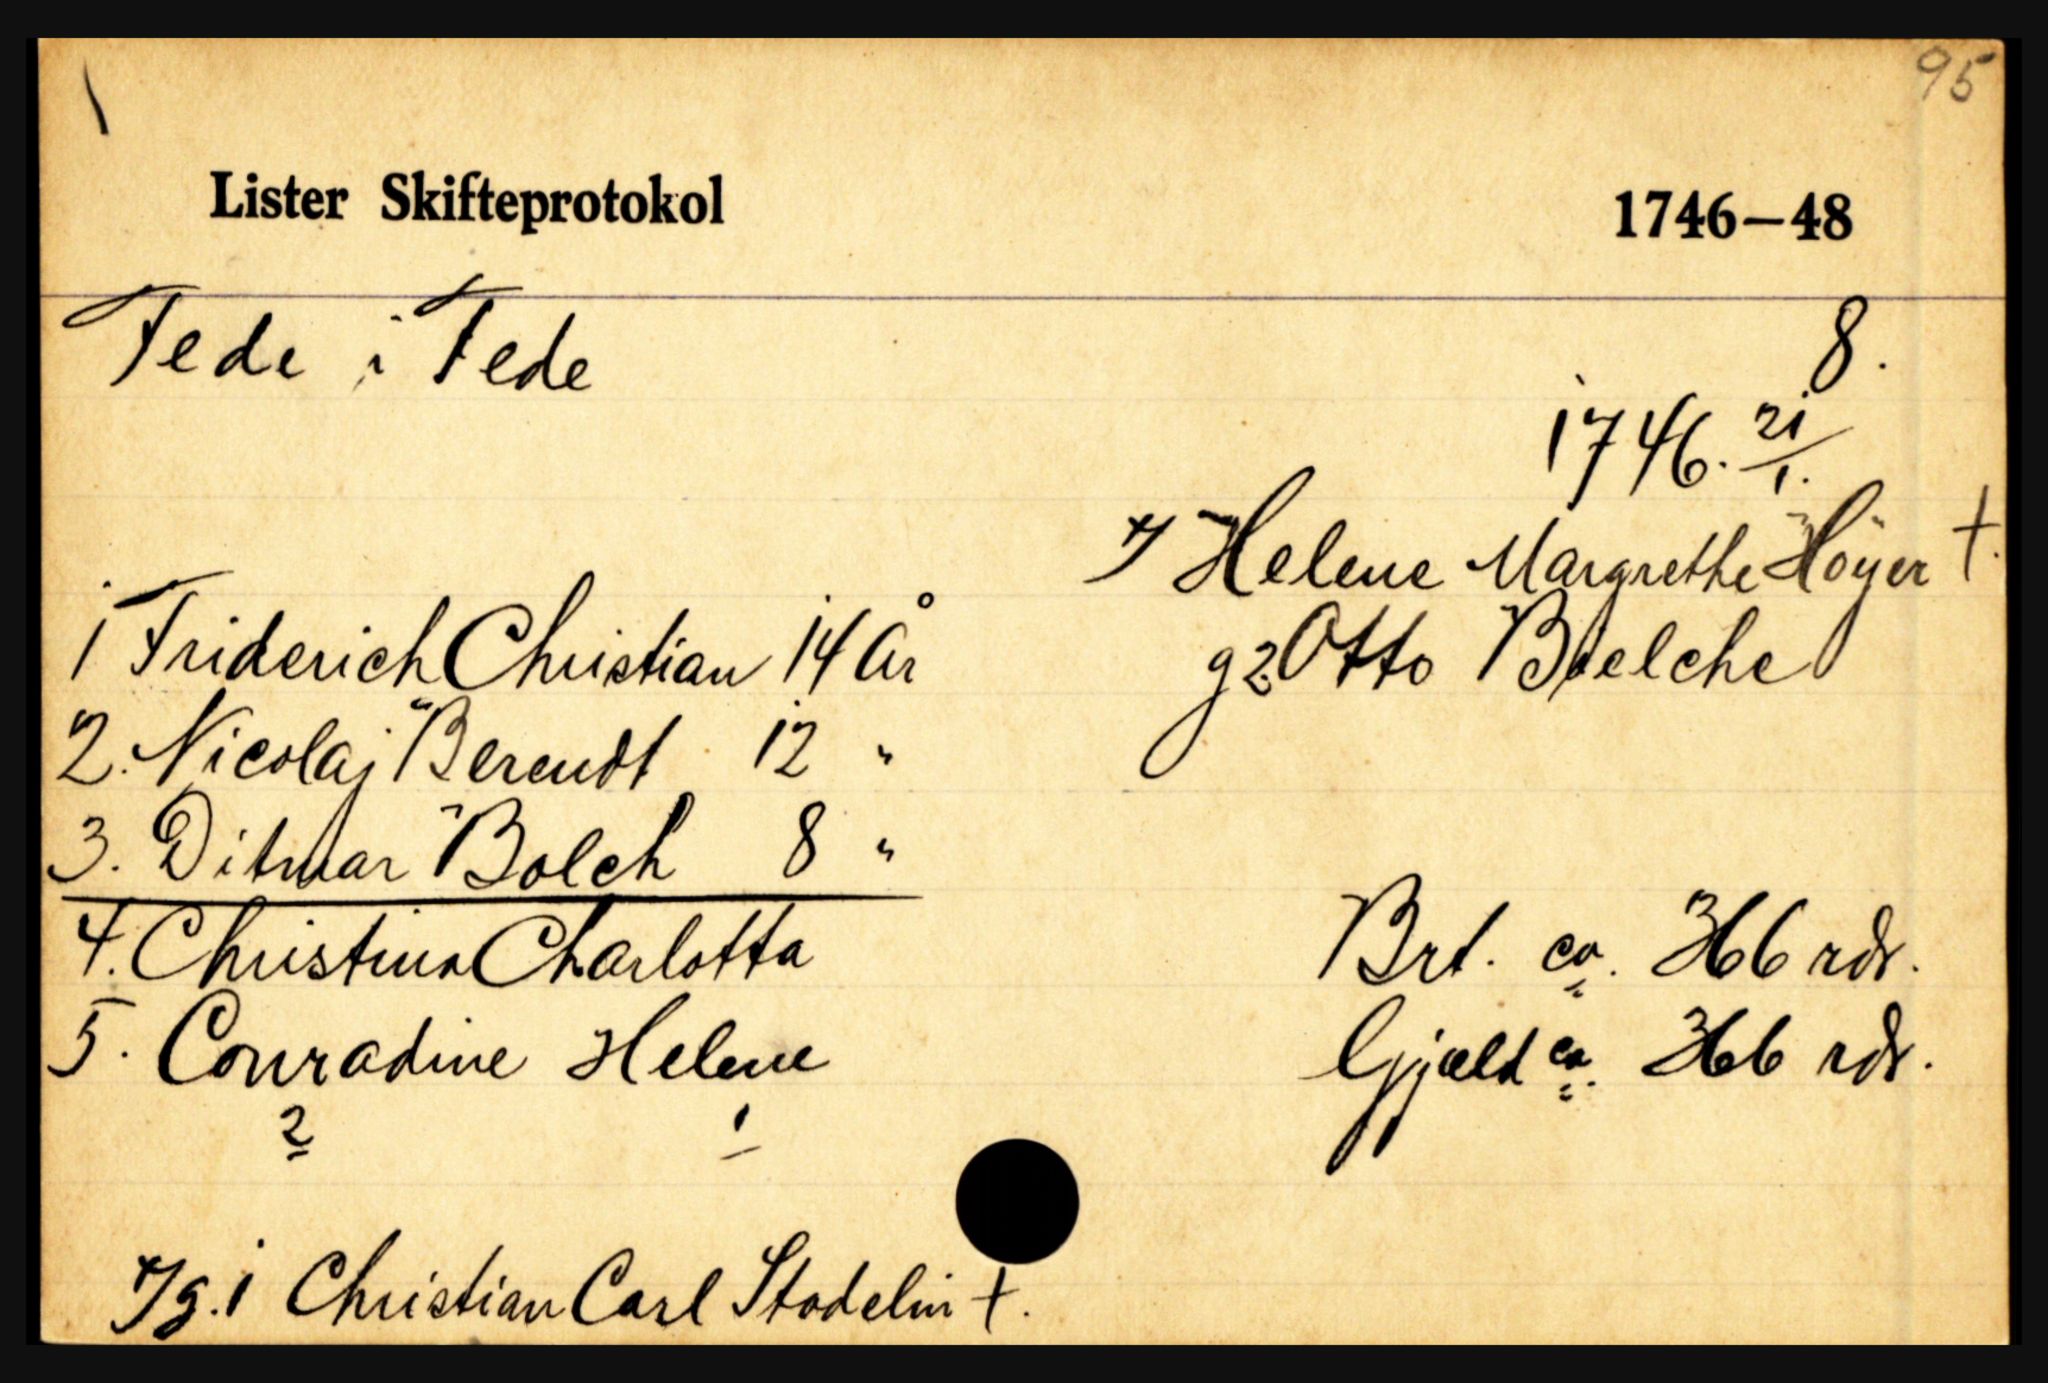 95
Lister Skifteprotokol 1746–48
Fede i Fede 8.
1746. 21/1.
*/ Helene Margrethe Höyer †.
g 2. Otto Boelche
1 Friderich Christian 14 år
2. Nicolaj Berendt 12 "
3. Ditmar Bolch 8 "
4. Christina Charlotta
5. Conradine Helene
2 1
Brt. ca. 366 rdr.
Gjæld ca. 366 rdr.
*/ g. 1 Christian Carl Stodelin †.